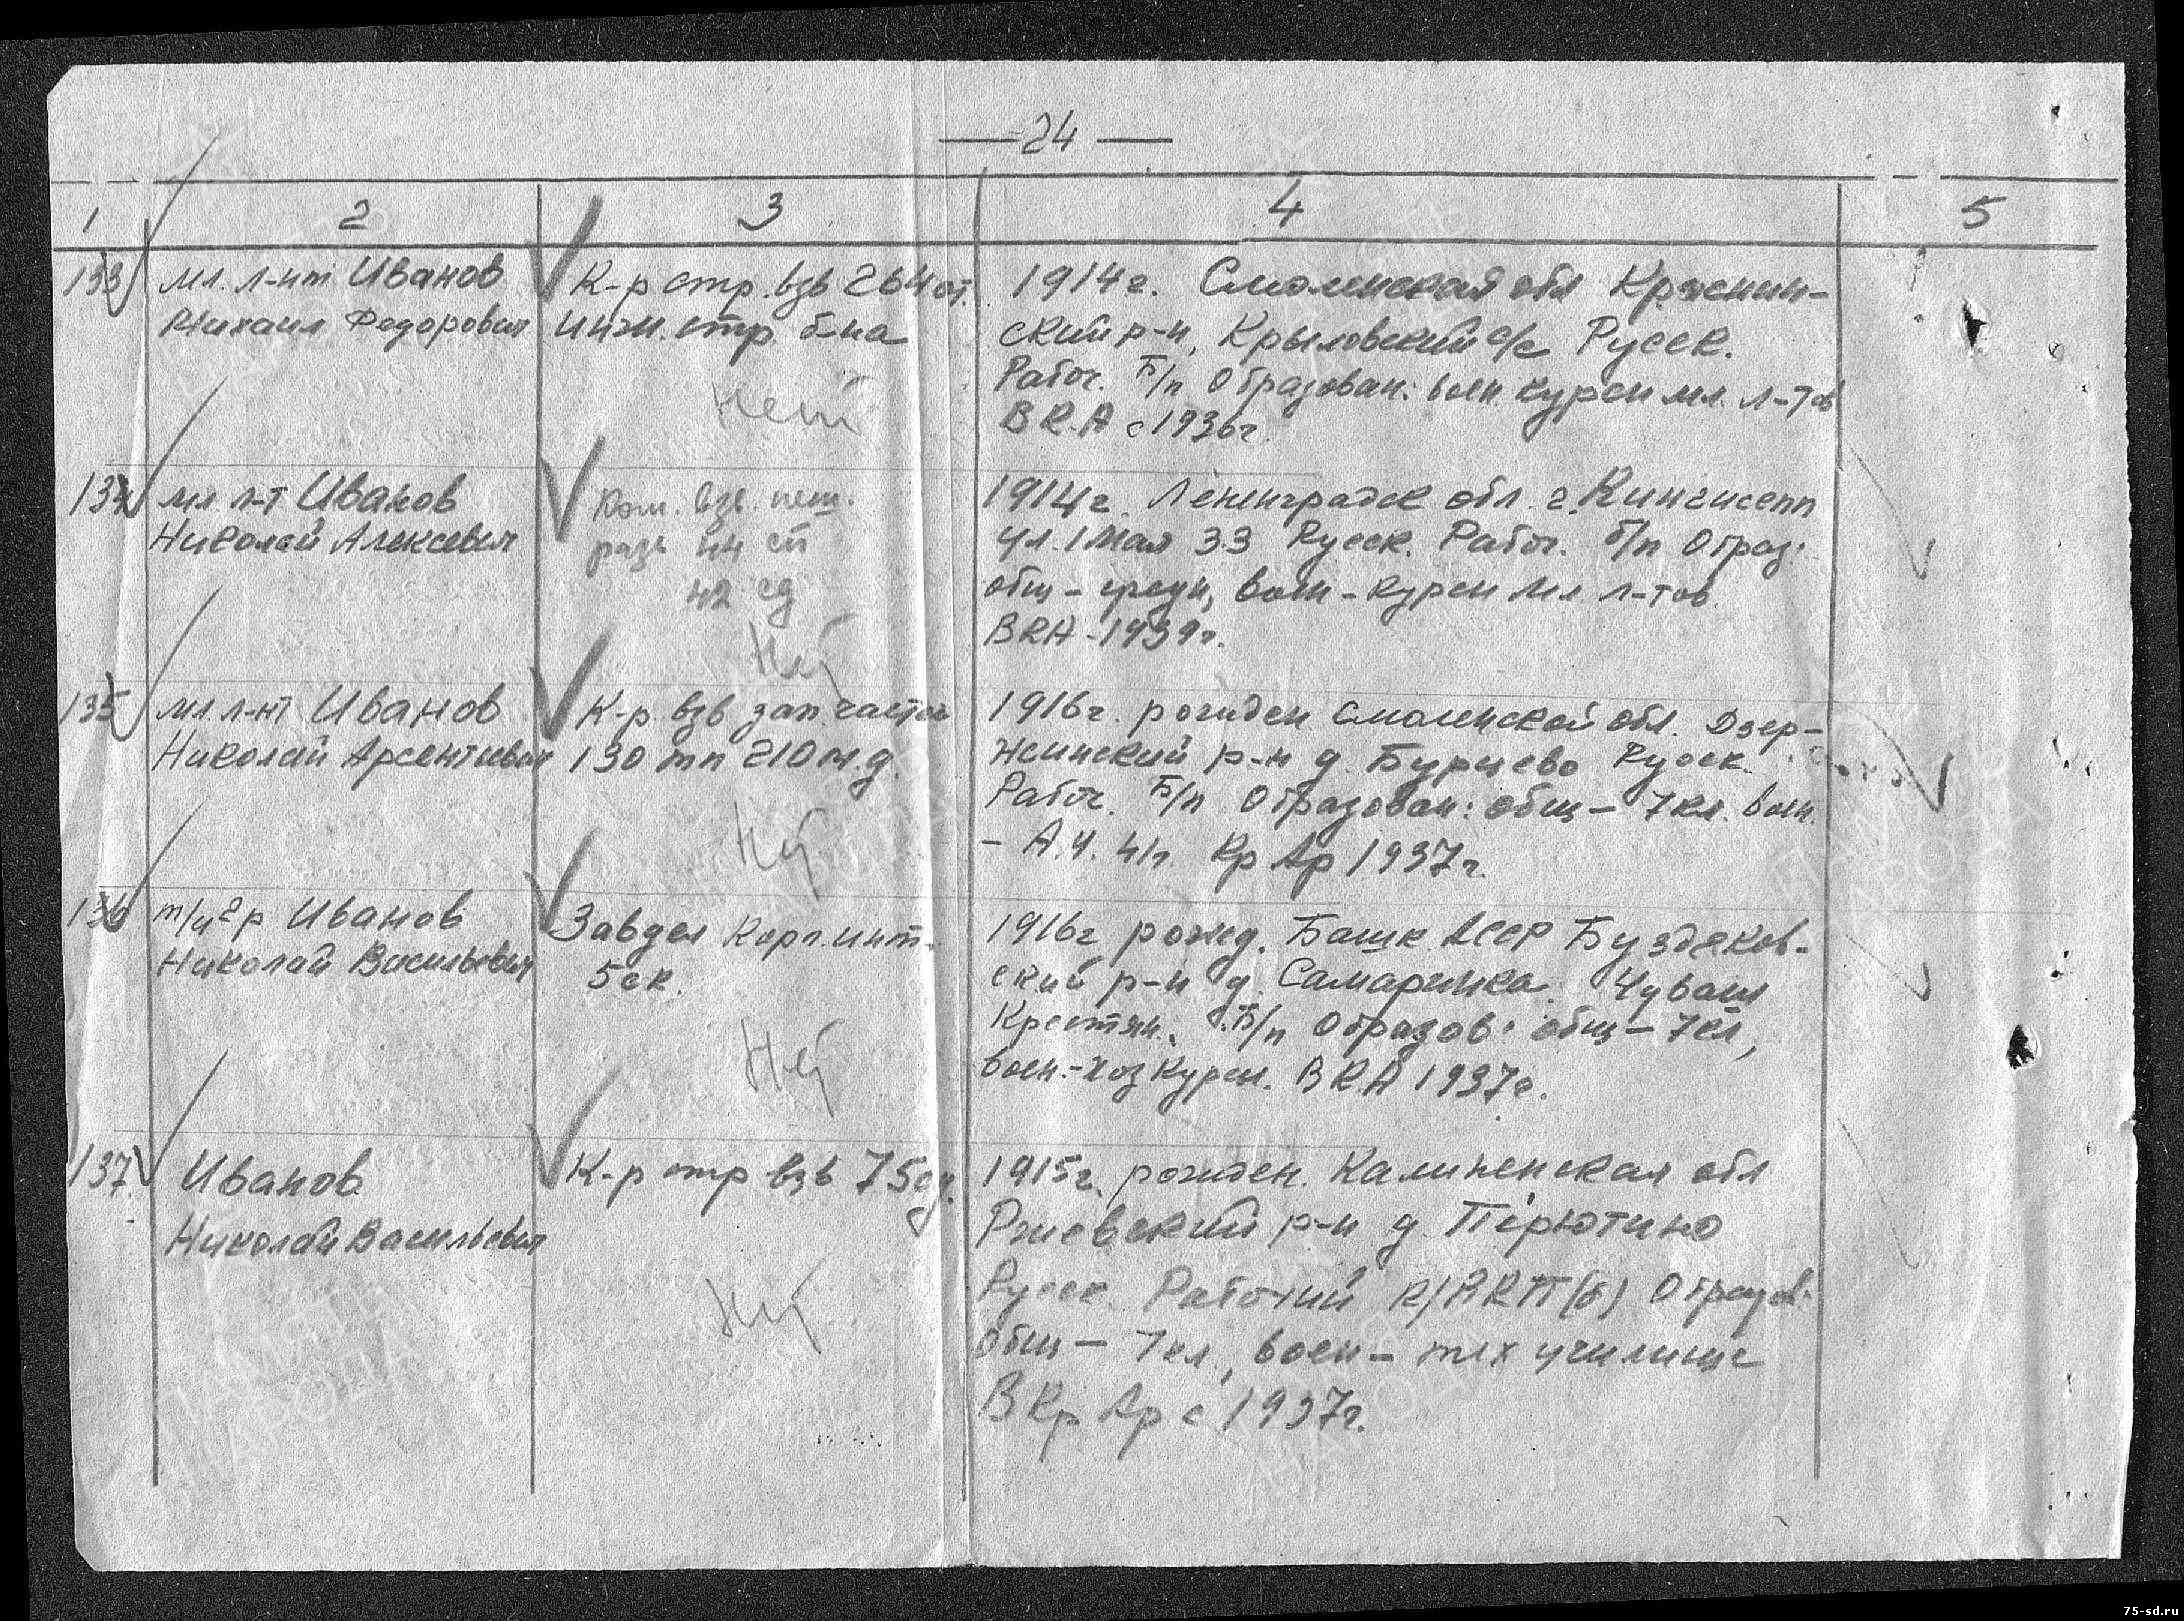 — 24 —
1 2 3 4 5
133 мл. л-нт Иванов
Михаил Федорович
К-р стр. взв 264 от.
инж. стр. б-на
Нет
1914г. Смоленская обл
ский р-н, Крыловский с/с Русск.
Рабоч. Б/п Образован: воен курсы мл. л-тов
В К.А с 1936г.
134 мл. л-т Иванов
Николай Алексевич
Ком. взв. пеш.
разв 44 сп
42 сд
Нет
1914г. Ленинградск обл. г. Кингисепп
ул. 1 Мая 33 Русск. Рабоч. б/п Образ:
общ - средн, воен - курсы мл. л-тов.
В КА - 1939г.
135 мл л-нт Иванов
Николай Арсентиевич
К-р. взв зап. частей
130 тп 210 м.д.
Нет
1916г. рожден. Смоленской обл. Дзер-
жинский р-н д. Бурцево Русск.
Рабоч. Б/п Образован: общ - 7 кл. воен.
- А.Ч. Кр Ар 1937г.
136 т/и 2 р Иванов
Николай Васильевич
Завдел Корп. инт-
5 ск.
Нет
1916г рожд. Башк АССР Буздяков-
ский р-н д. Самаринка. Чуваш
Крестян. Б/п Образов: общ - 7 кл,
воен.-хоз курсы. В К.А 1937г.
137. Иванов
Николай Васильевич
К-р стр взв 75 сд.
Нет
1915г. рожден. Калиненская обл
Ржевский р-н д. Перютино
Русск. Рабочий к/ВКП(б) Образов:
общ - 7 кл., воен - тех училище
В Кр Ар с 1937г.
75-sd.ru